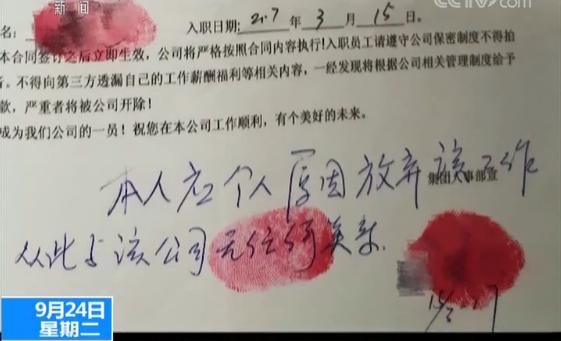 新闻
CCTV.com
名:
入职日期: 2017 年 3 月 15 日。
本合同签订之后立即生效，公司将严格按照合同内容执行!入职员工请遵守公司保密制度不得拍
。不得向第三方透漏自己的工作薪酬福利等相关内容，一经发现将根据公司相关管理制度给予
款，严重者将被公司开除！
成为我们公司的一员！祝您在本公司工作顺利，有个美好的未来。
集团人事部宣
本人应个人原因放弃该工作
从此与该公司无任何关系.
9月24日
星期二